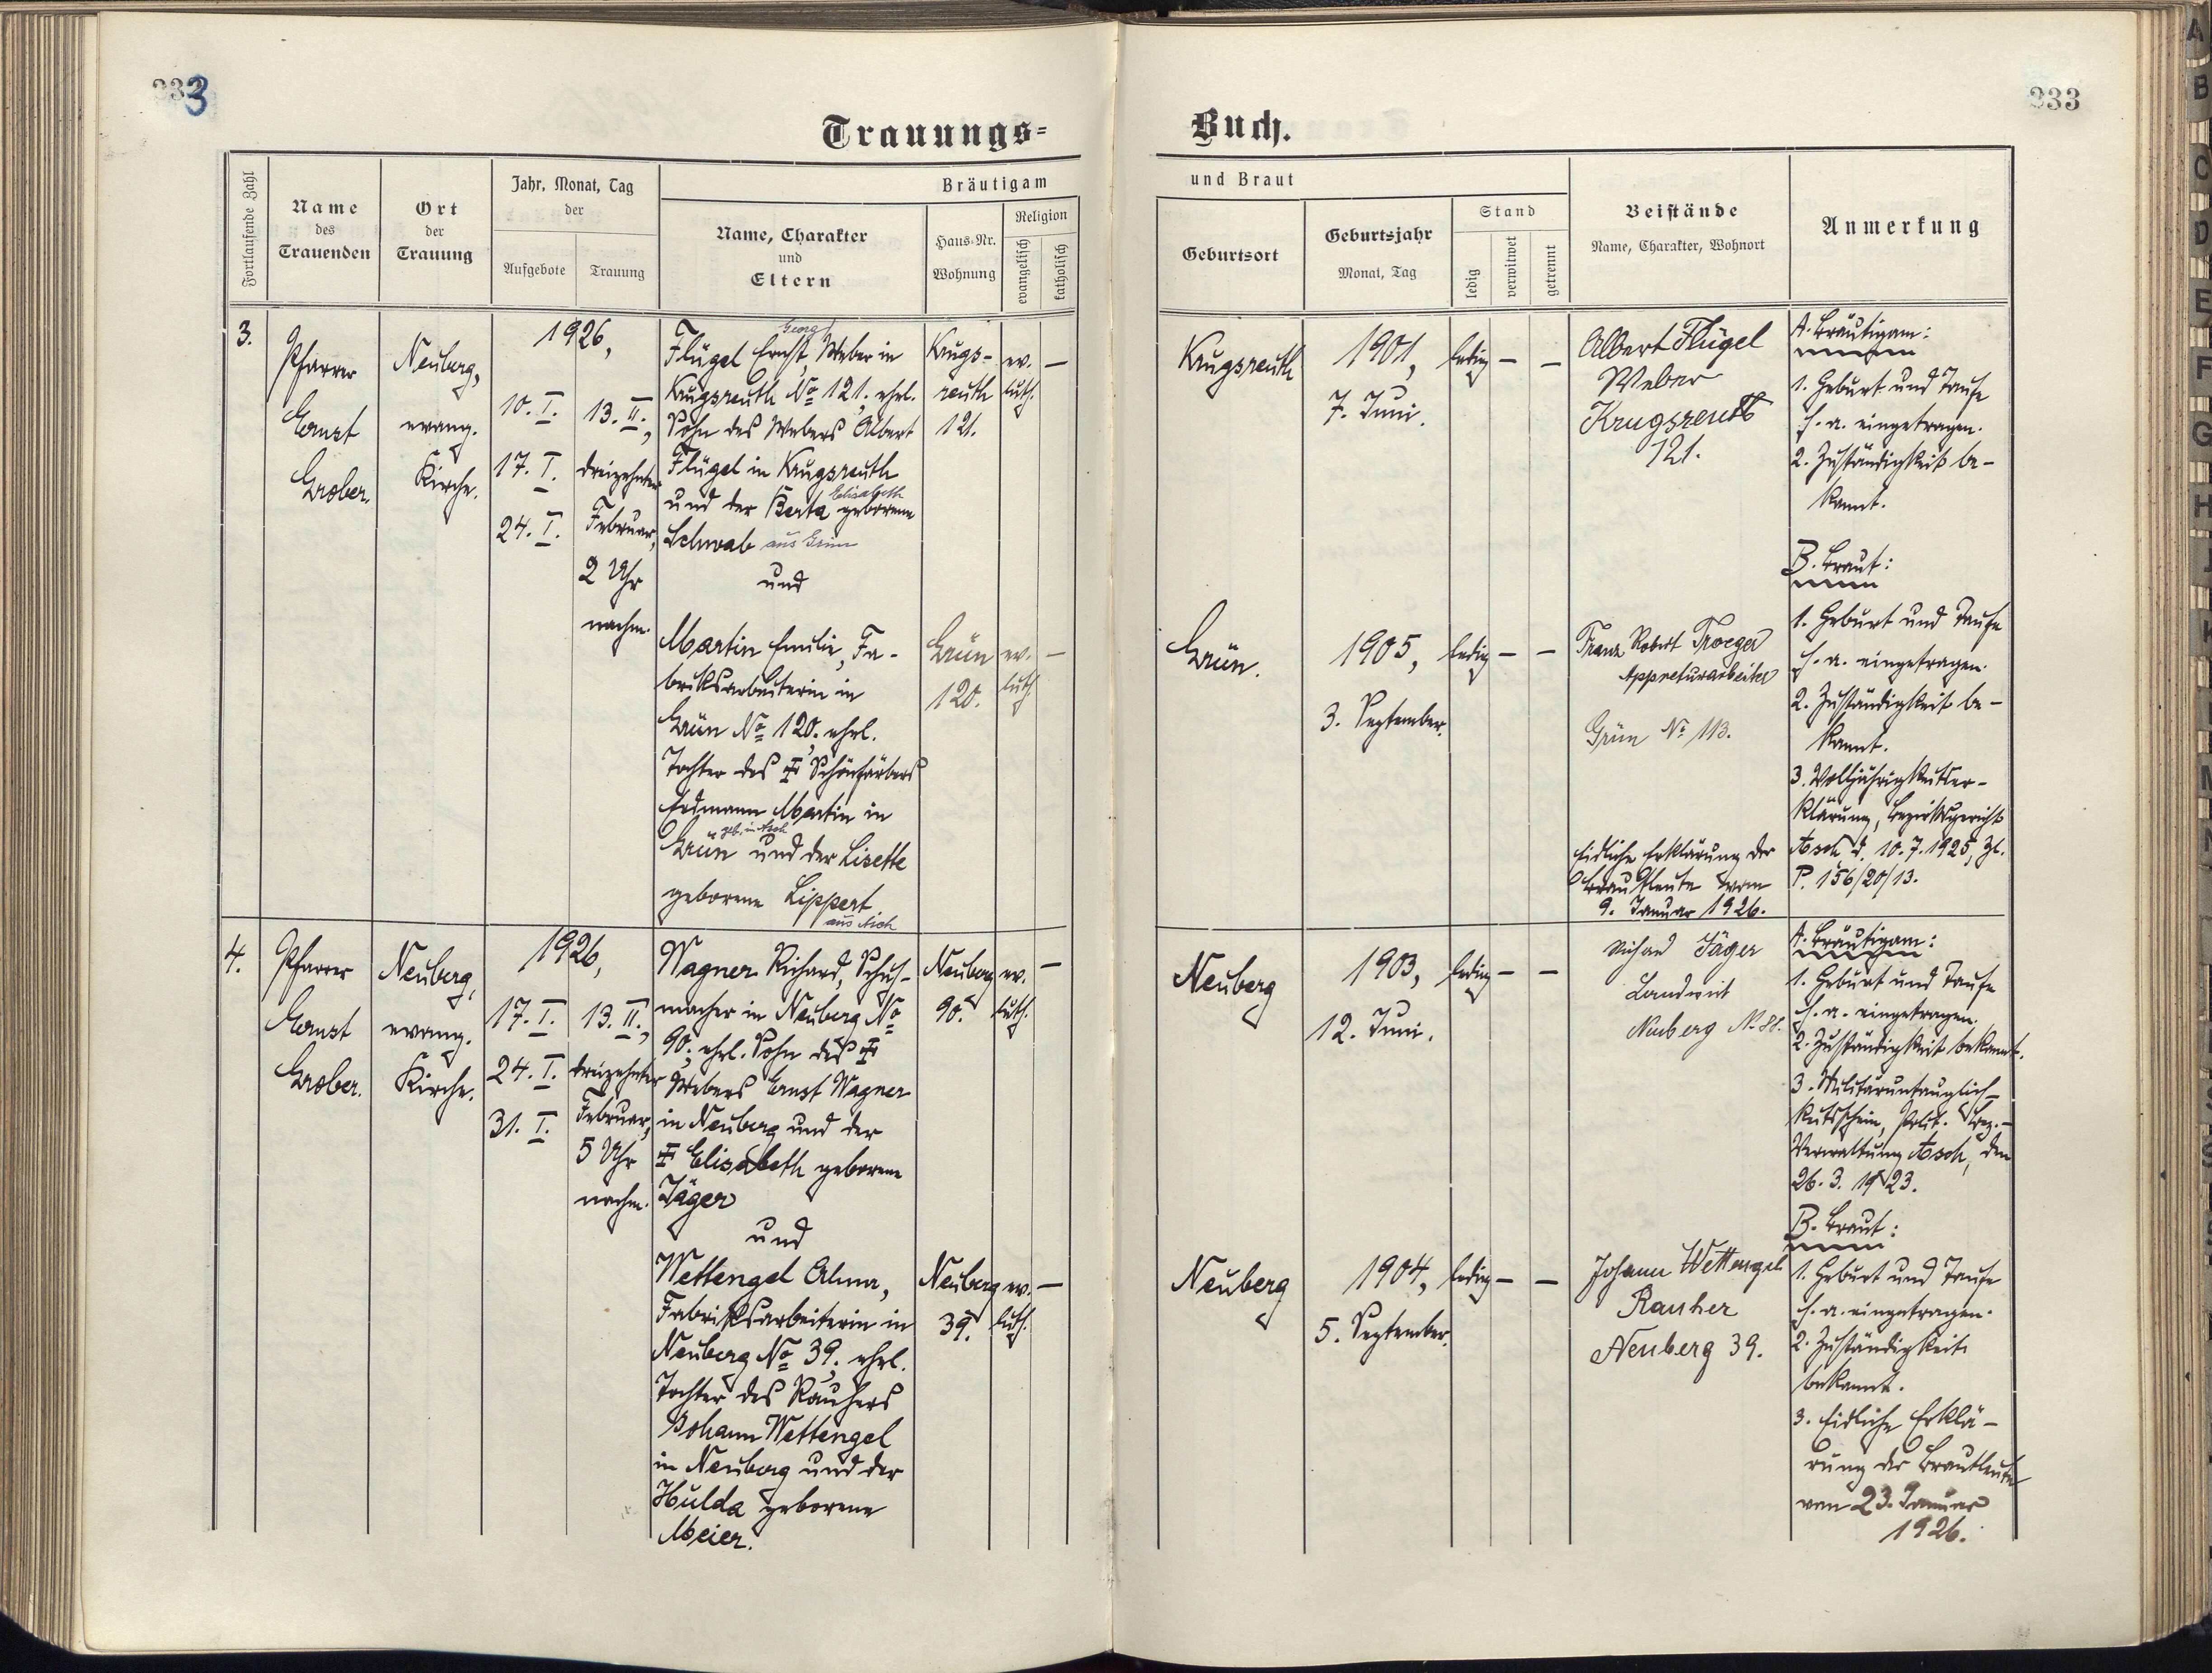 233
233
Trauungs-
Buch.
Fortlaufende Zahl
Name
des
Trauenden
Ort
der
Trauung
Jahr, Monat, Tag
der
Aufgebote
Trauung
Bräutigam
Name, Charakter
und
Eltern
Haus-Nr.
Wohnung
Religion
evangelisch
katholisch
und Braut
Geburtsort
Geburtsjahr
Monat, Tag
Stand
ledig
verwitwet
getrennt
Beistände
Name, Charakter, Wohnort
Anmerkung
3.
Pfarrer
Ernst
Grober.
Neuberg,
evang.
Kirche.
1926,
10. I.
17. I.
24. I.
13. II.,
dreizehnter
Februar,
2 Uhr
nachm.
Georg
Flügel Ernst, Weber in
Krugsreuth No 121, ehel.
Sohn des Webers Albert
Flügel in Krugsreuth
und der Berta Elisabeth geborene
Schwab aus Grün
und
Martin Emilie, Fa-
briksarbeiterin in
Grün No 120, ehel.
Tochter des ‡ Schönfärbers
Erdmann Martin in
Grün geb. in Asch und der Lisette
geborene Lippert
aus Asch
Krugs-
reuth
121.
ev.
luth.
—
Grün
120.
ev.
luth
—
Krugsreuth
1901,
7. Juni.
ledig — —
Grün.
1905,
3. September.
ledig — —
Albert Flügel
Weber
Krugsreuth
121.
Franz Robert Troeger
Appreturarbeiter
Grün No 113.
Eidliche Erklärung der
Brautleute vom
9. Januar 1926.
A. Bräutigam:
1. Geburt und Taufe
h. a. eingetragen.
2. Zuständigkeit be-
kannt.
B. Braut:
1. Geburt und Taufe
h. a. eingetragen.
2. Zuständigkeit be-
kannt.
3. Volljährigkeitser-
klärung, Bezirksgericht
Asch d. 10.7.1925, Zl.
P. 156/20/13.
4.
Pfarrer
Ernst
Grober.
Neuberg,
evang.
Kirche.
1926,
17. I.
24. I.
31. I.
13. II.,
dreizehnter
Februar,
5 Uhr
nachm.
Wagner Richard, Schuh-
macher in Neuberg No
90, ehel. Sohn des ‡
Webers Ernst Wagner
in Neuberg und der
‡ Elisabeth geborene
Jäger
und
Wettengel Alma,
Fabriksarbeiterin in
Neuberg No 39, ehel.
Tochter des Rauhers
Johann Wettengel
in Neuberg und der
Hulda geborene
Meier.
Neuberg
90.
ev.
luth.
—
Neuberg
39.
ev.
luth.
—
Neuberg
1903,
12. Juni.
ledig — —
Neuberg
1904,
5. September.
ledig — —
Richard Jäger
Landwirt
Neuberg No 88.
Johann Wettengel
Rauher
Neuberg 39.
A. Bräutigam:
1. Geburt und Taufe
h. a. eingetragen.
2. Zuständigkeit bekannt.
3. Militäruntauglich-
keitsschein, Polit. Bez.-
Verwaltung Asch, den
26. 3. 1923.
B. Braut:
1. Geburt und Taufe
h. a. eingetragen.
2. Zuständigkeit
bekannt.
3. Eidliche Erklä-
rung der Brautleute
vom 23. Januar
1926.